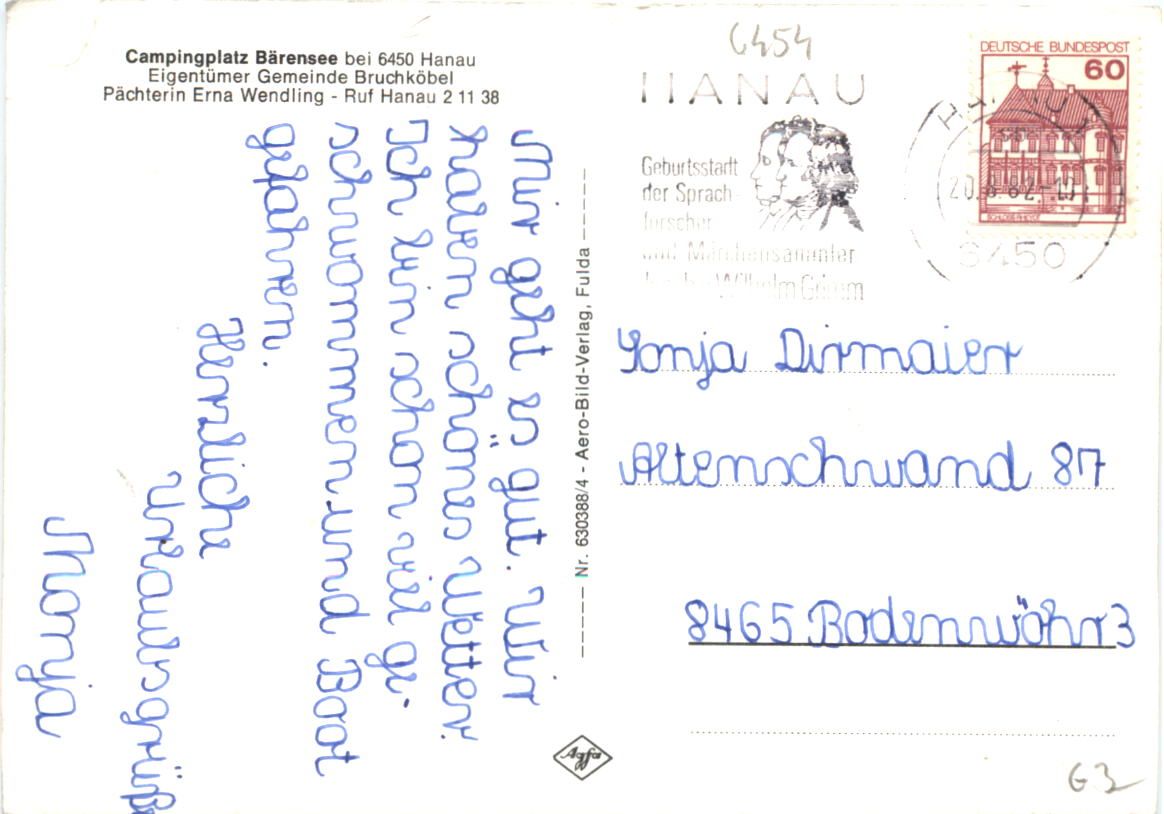 Campingplatz Bärensee bei 6450 Hanau
Eigentümer Gemeinde Bruchköbel
Pächterin Erna Wendling - Ruf Hanau 2 11 38
Mir geht es gut. Wir
haben schönes Wetter.
Ich bin schon viel ge-
schwommen und Boot
gefahren.
Herzliche
Urlaubsgrüße
Monja
Nr. 630388/4 - Aero-Bild-Verlag, Fulda
Agfa
6454
HANAU
Geburtsstadt
der Sprach-
forscher
und Märchensammler
Wilhelm Grimm
DEUTSCHE BUNDESPOST
60
HANAU
6450
Sonja Dirmaier
Altenschwand 87
8465 Bodenwöhr 3
G3